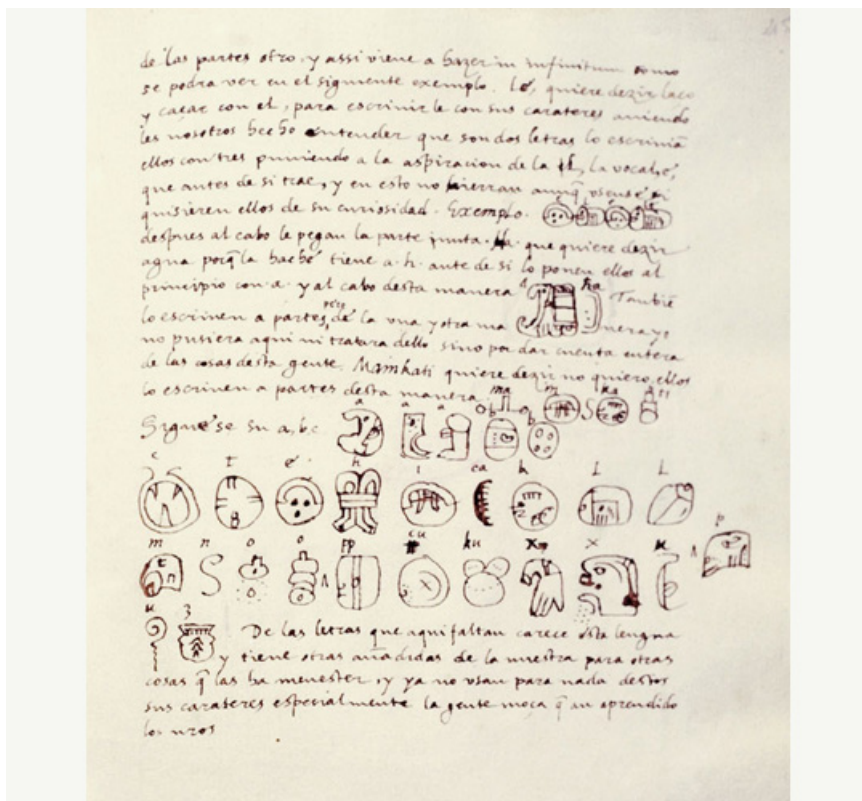 de las partes otro, y assi viene a hazer in infinitum como
se podra ver en el siguiente exemplo. Lé, quiere dezir laco
y caçar con el, para escriuir le con sus carateres auiendo
les nosotros hecho entender que son dos letras lo escriuiã
ellos con tres puniendo a la aspiracion de la l, la vocal é,
que antes de si trae, y en esto no hierran aunq̃ usense si
quisieren ellos de su curiosidad. Exemplo.
despues al cabo le pegan la parte junta. Ha. que quiere dezir
agua porq̃ la hache tiene a.h. ante de si lo ponen ellos al
principio con a. y al cabo desta manera a ha Tambiẽ
lo escriuen a partes, pero de la una y otra ma nera yo
no pusiera aqui ni tratara dello sino por dar cuenta entera
de las cosas desta gente. Mainkati quiere dezir no quiero, ellos
lo escriuen a partes desta manera. ma i n ka ti
Siguese su a, b, c. a a a b b
c t é h i ca k l l
m n o o pp cu ku x x u p
u z
De las letras que aqui faltan carece esta lengua
y tiene otras añadidas de la nuestra para otras
cosas q̃ las ha menester, y ya no usan para nada destos
sus carateres especialmente la gente moça q̃ an aprendido
los nros